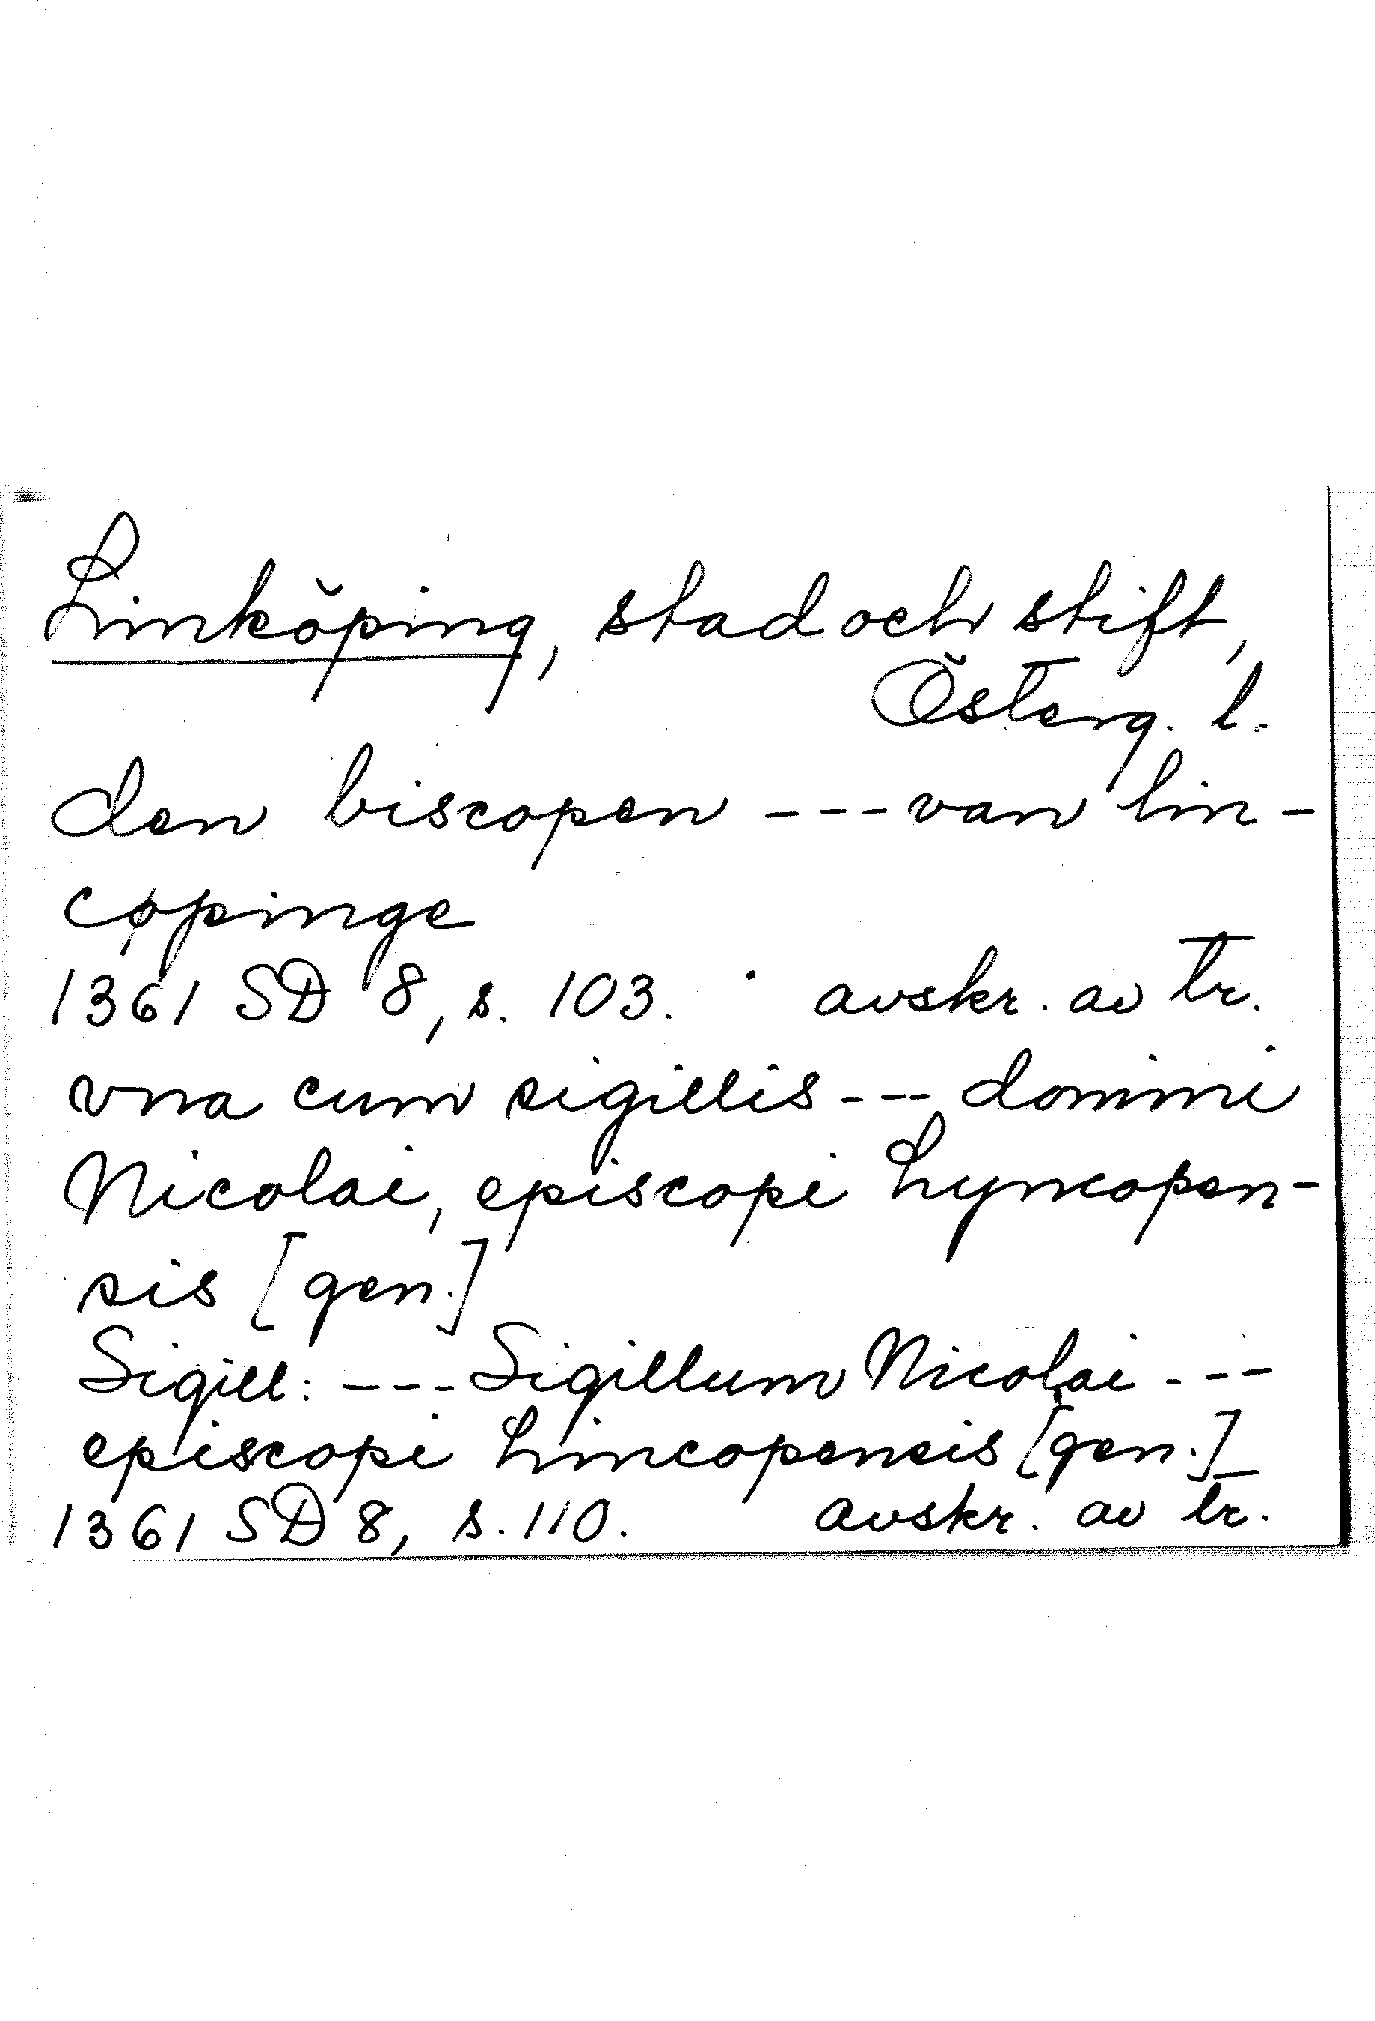 Linköping, stad och stift,
Österg. l.
den biscopen --- van lin-
cøpinge
1361 SD 8, s. 103. avskr. av tr.
vna cum sigillis --- domini
Nicolai, episcopi Lyncopen-
sis [gen.]
Sigill: --- Sigillum Nicolai ---
episcopi Lincopensis [gen.]
1361 SD 8, s. 110. avskr. av tr.